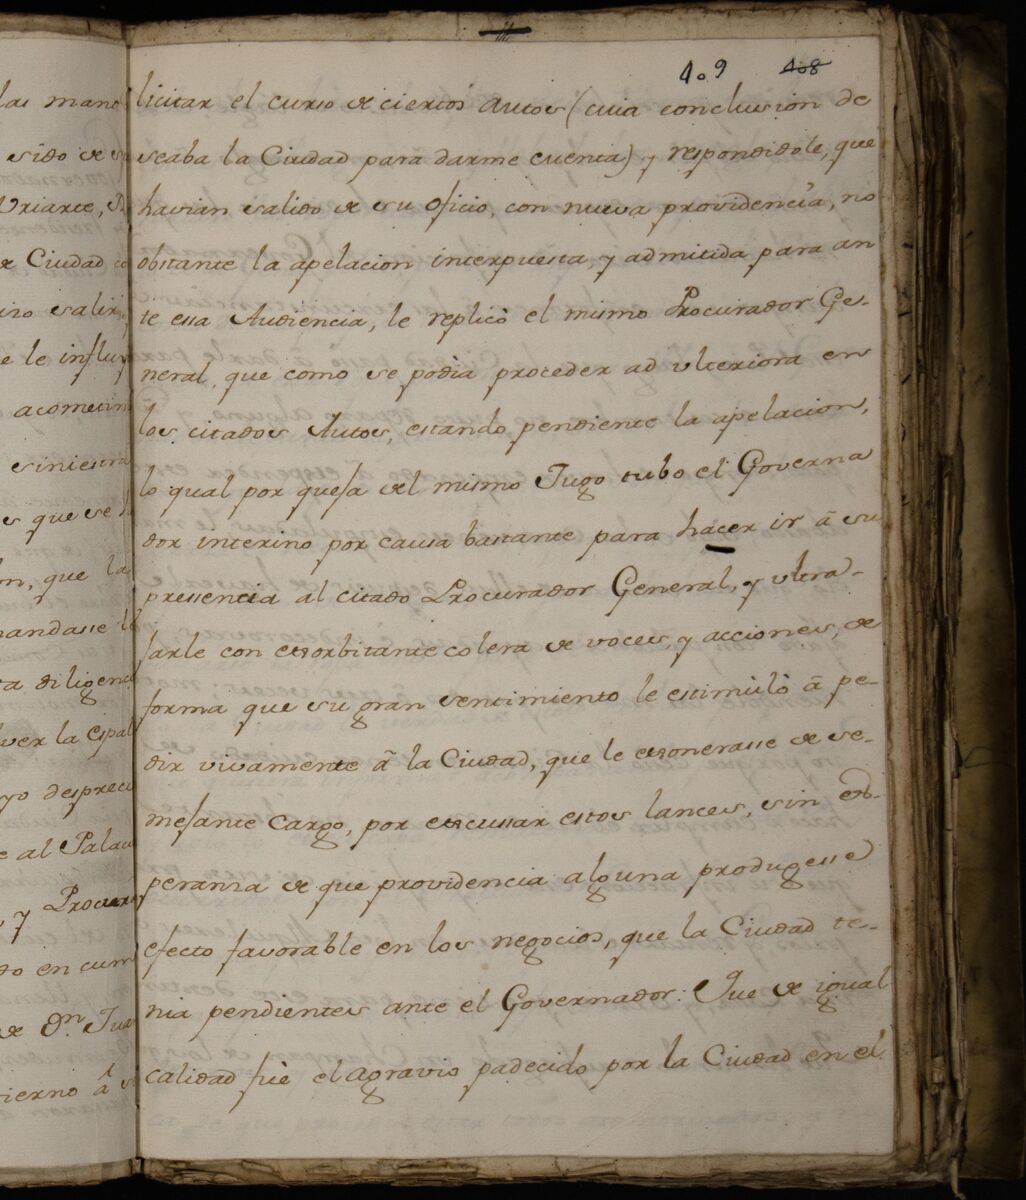 409 408
licitar el curso de ciertos Autos (cuia conclusion de
seaba la Ciudad para darme cuenta) y respondidole, que
havian salido de su oficio, con nueva providencia, no
obstante la apelacion interpuesta, y admitida para an
te essa Audiencia, le replicò el mismo Procurador Ge-
neral, que como se podia proceder ad ulteriora en
los citados Autos, estando pendiente la apelacion,
lo qual por quexa del mismo Jugo tubo el Governa
dor interino por causa bastante para hacer ir â su
pressencia al citado Procurador General, y ultra-
jarle con exorbitante colera de voces, y acciones, de
forma que su gran sentimiento le estimulò â pe-
dir vivamente â la Ciudad, que le exonerasse de se-
mejante cargo, por excussar estos lances, sin es-
peranza de que providencia alguna produgesse
efecto favorable en los negocios, que la Ciudad te-
nia pendientes ante el Governador: Que de igual
calidad fuè el agravio padecido por la Ciudad en el
las mano
sido de s
Uriarte, P
de Ciudad co
iso salir
e le influy
acometim
siniestra
es que se h
on, que la
mandasse lo
ta diligenc
lver la espal
yo despreci
e al Palac
, y Procura
do en cum
de Dn Jua
ierno â s